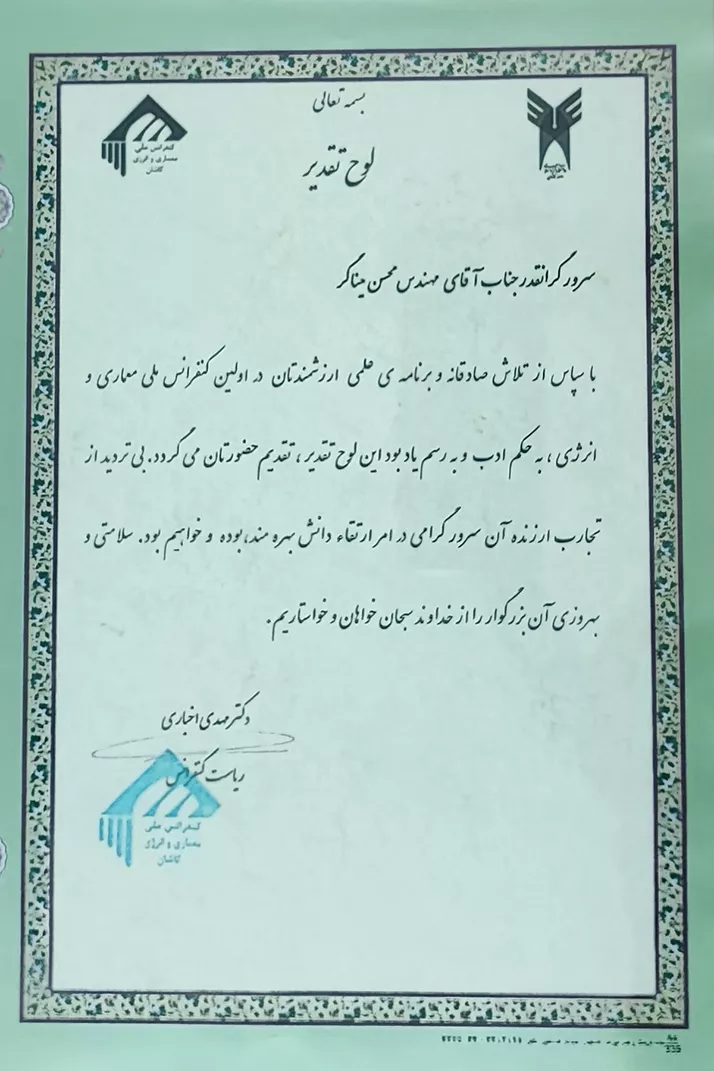 بسمه تعالی
کنفرانس ملی
معماری و انرژی
کاشان
لوح تقدیر
سرور گرانقدر جناب آقای مهندس محسن میناگر
با سپاس از تلاش صادقانه و برنامه ی علمی ارزشمندتان در اولین کنفرانس ملی معماری و
انرژی ، به حکم ادب و به رسم یادبود این لوح تقدیر ، تقدیم حضورتان می گردد. بی تردید از
تجارب ارزنده آن سرور گرامی در امر ارتقاء دانش بهره مند،بوده و خواهیم بود. سلامتی و
بهروزی آن بزرگوار را از خداوند سبحان خواهان و خواستاریم.
دکتر مهدی اخباری
ریاست کنفرانس
کنفرانس ملی
معماری و انرژی
کاشان